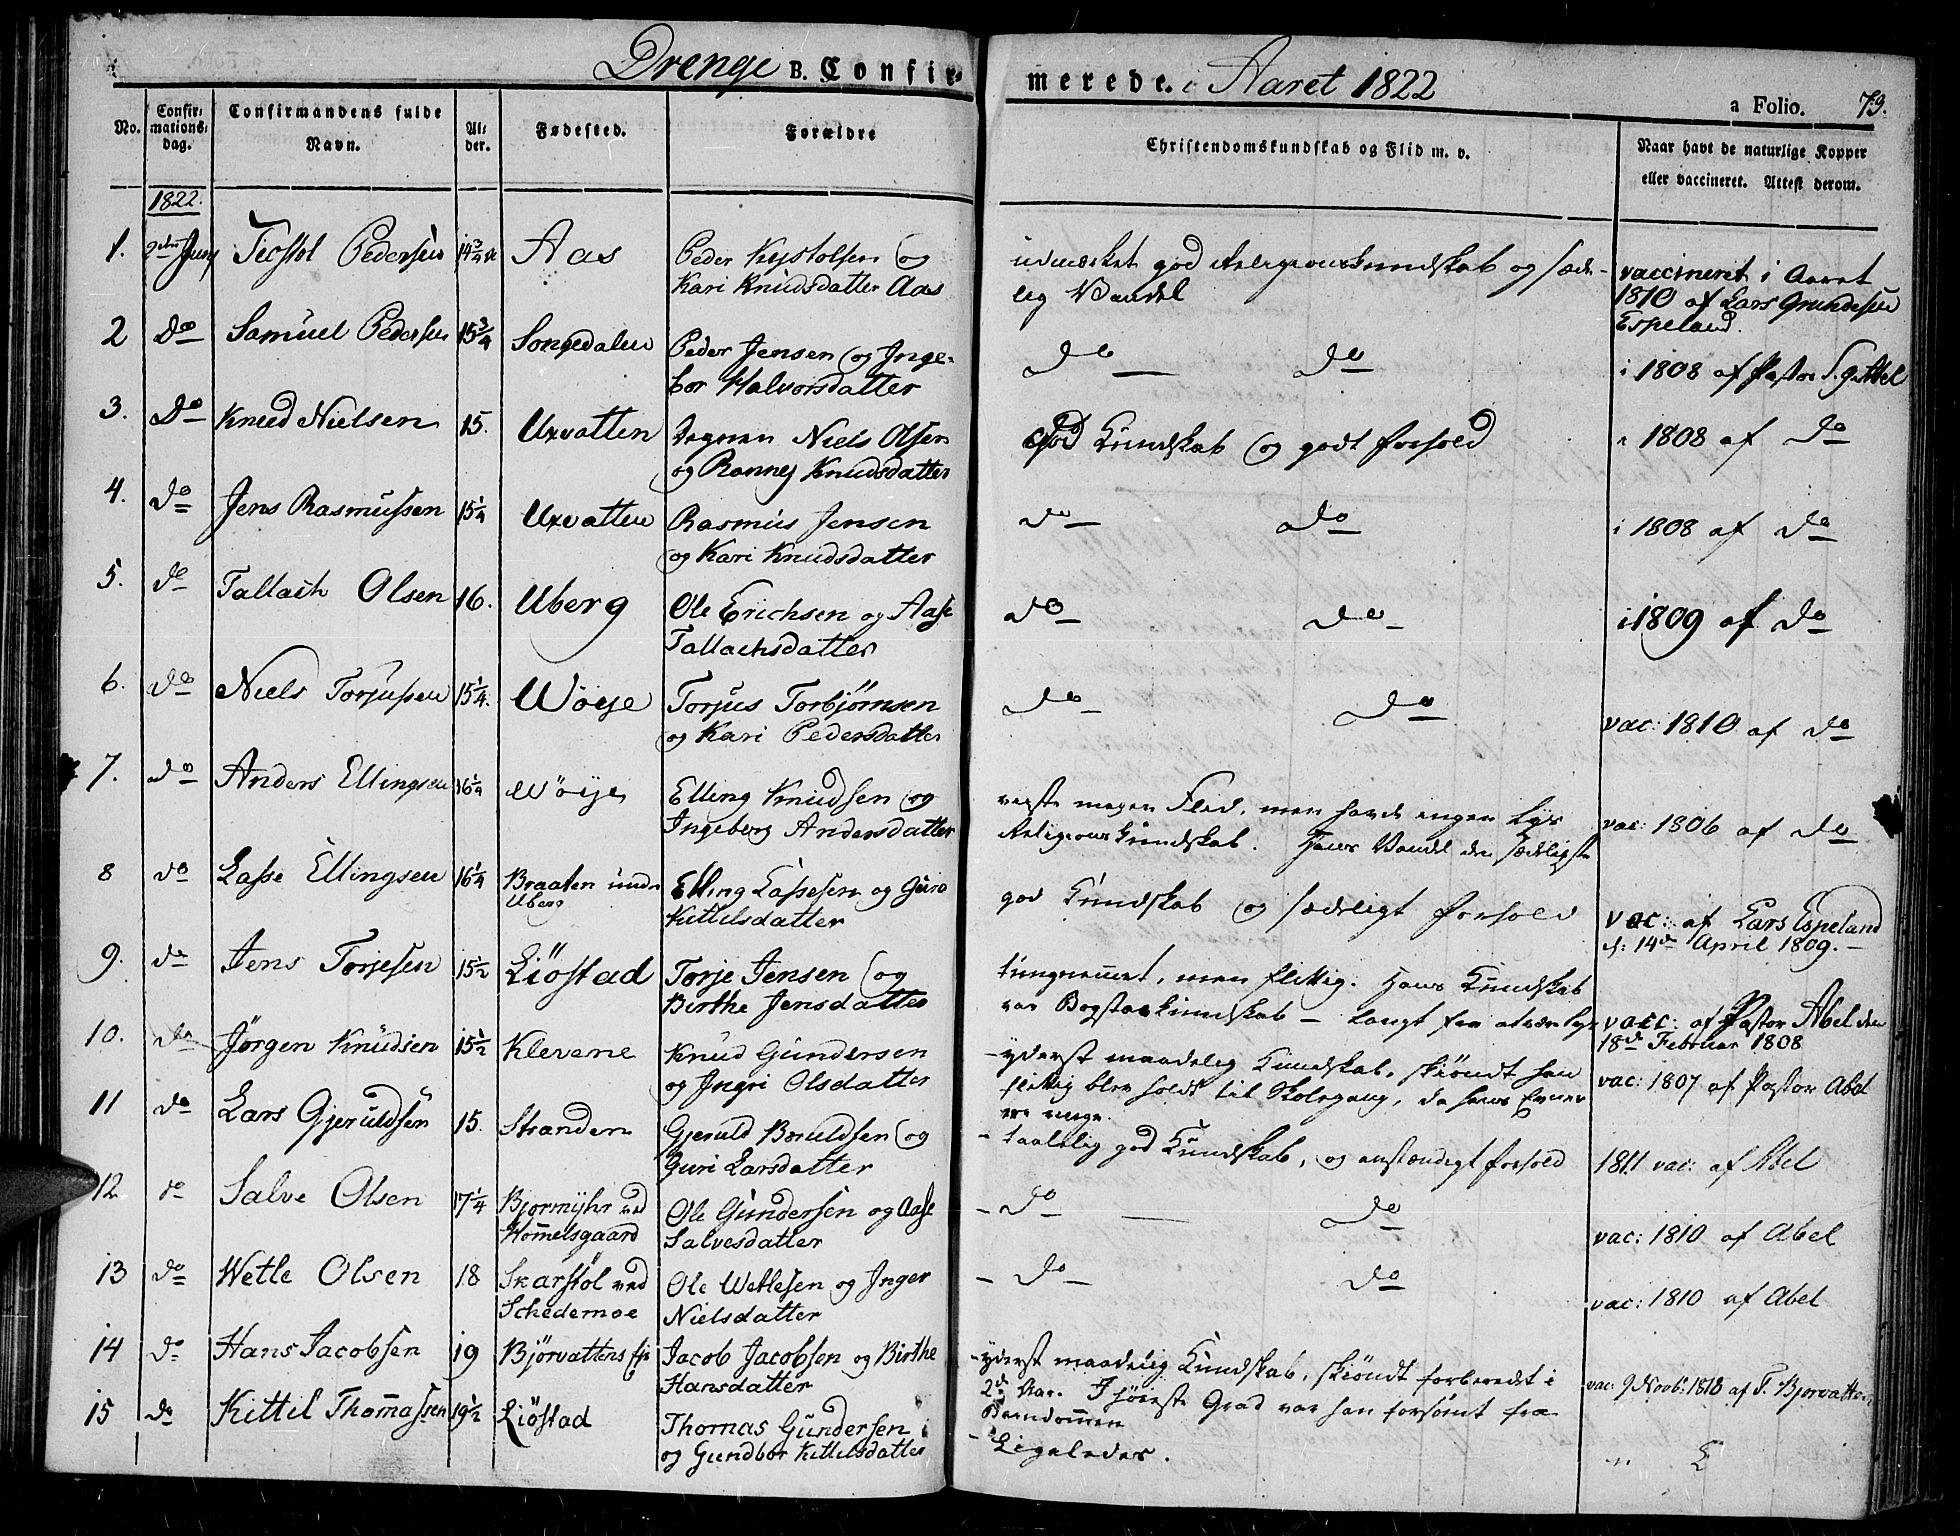 Drenge B. Confirmerede. i Aaret 1822
a Folio. 79.
No. Confirmationsdag. Confirmandens fulde Navn. Alder. Fødested. Forældre Christendomskundskab og Flid m. v. Naar havt de naturlige Kopper eller vaccineret. Attest derom.
1822.
1. 2den Juny Pedersen 14 3/4 Aas Peder og udmærket god Religionskundskab og sæde- vaccineret i Aaret
Kari Knudsdatter Aas lig Vandel 1810 af Lars Grundesen
Espeland.
2 Do Samuel Pedersen 15 3/4 Songedalen Peder Jensen og Inge- do do i 1808 af Pastor Abel
bor Halvorsdatter
3. Do Knud Nielsen 15. Uxvatten Degnen Niels Olsen God Kundskab og godt Forhold i 1808 af do
og Ronnej Knudsdatter
4. do Jens Rasmussen 15 1/4 Uxvatten Rasmus Jensen do do i 1808 af do
og Kari Knudsdatter
5. do Tallach Olsen 16. Uberg Ole Erichsen og Aase do do i 1809 af do
Tallachsdatter
6. do Niels Torjusen 15 1/4. Wöye Torjus Torbjørnsen do do vac: 1810 af do
og Kari Pedersdatter
7. do Anders Ellingsen 16 1/4 Wöye Elling Knudsen og megen Flid, men havde ingen lys vac: 1806 af do
Ingeborg Andersdatter Religionskundskab. Hans Vandel den sædeligste
8 do Lasse Ellingsen 16 1/4 Braaten under Elling Lassesen og Guro god Kundskab og sædeligt Forhold vac: af Lars Espeland
Uberg Kittelsdatter d: 14de April 1809.
9. do Jens Torjesen 15 1/2 Liöstad Torje Jensen og tungnemmet, men flittig. Hans Kundskab
Birthe Jensdatter var Bogstavkundskab – langt fra vacc: af Pastor Abel den
18de Februar 1808
10. do Jørgen Knudsen 15 1/2 Klevene Knud Gundersen - yderst maadelig Kundskab, skiöndt han vac: 1807 af Pastor Abel
og Ingri Olsdatter flittig blev holdt til Skolegang, da hans Evner
ere ringe.
11 do Lars Gjeruldsen 15. Stranden Gjeruld Boruldsen og - taalelig god Kundskab, og anstændigt Forhold 1811 vac: af Abel
Guri Larsdatter
12 do Salve Olsen 17 1/4 Bjormyhr ved Ole Gundersen og Aase - do do vac: 1810 af Abel
Hommelsgaard Salvesdatter
13 do Wetle Olsen 18 Skarstöl ved Ole Wetlesen og Inger - do do vac: 1810 af Abel
Schedemoe Nielsdatter
14 do Hans Jacobsen 19 Björvattens Jacob Jacobsen og Birthe - yderst maadelig Kundskab, skiöndt forberedt i vac: 9 Novb: 1818 af T. Bjorvatten
Hansdatter 2de Aar. I höieste Grad var han forsömt fra
Barndommen
15 do Kittel Thomassen 19 1/2 Liöstad Thomas Gundersen - Ligeledes. "
og Gundbor Kittelsdatter